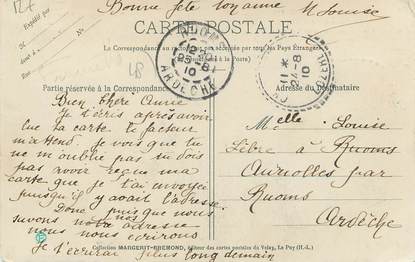 Bonne fête Roxanne M Louise
CARTE POSTALE
La Correspondance au recto pas acceptée par tous les Pays Étrangers
Partie réservée à la Correspondance
Adresse du Destinataire
ARDÈCHE
10
Bien Chère Amie
Je t'écris après avoir
lue ta carte le facteur
m'attend. Je vois que tu
ne m'oublie pas tu dois
pas avoir reçue ma
carte que je t'ai envoyée
puisqu'il y avait l'adresse.
Donc puisque nous
savons notre adresse
nous nous écrirons
je t'écrirai plus long demain
Melle Louise
Lèbre à Ruoms
Auriolles par
Ruoms
Ardèche
Collection MARGERIT-BREMOND, Éditeur des cartes postales du Velay, Le Puy (H.-L.)